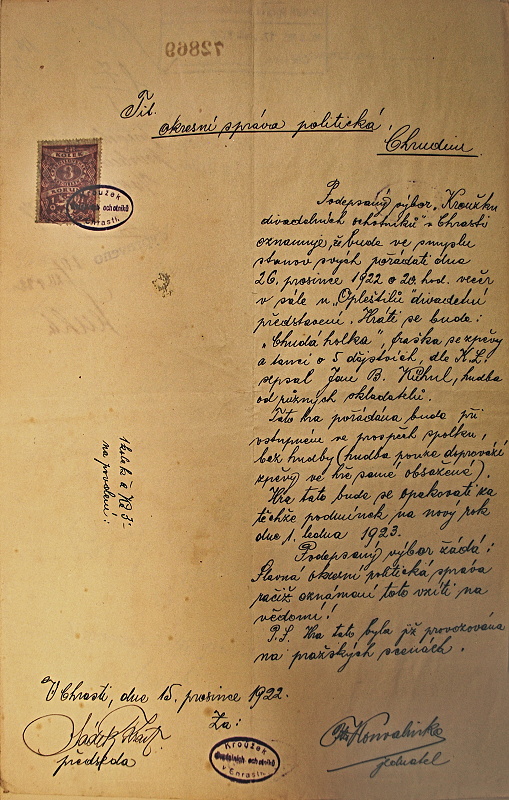 72869
Tit.
okresní správa politická
Chrudim.
KOLEK
3
Kroužek
divadelních ochotníků
v Chrasti.
Podepsaný výbor „Kroužku
divadelních ochotníků" v Chrasti
oznamuje, že bude ve smyslu
stanov svých pořádati dne
26. prosince 1922 o 20. hod. večer
v sále u „Opleštilů" divadelní
představení. Hráti se bude:
„Chudá holka", fraška se zpěvy
a tanci o 5 dějstvích, dle K. L.
sepsal Jan B. Kühnl, hudba
od různých skladatelů.
Tato hra pořádána bude při
vstupném ve prospěch spolku,
bez hudby (hudba pouze doprovází
zpěvy ve hře samé obsažené).
Hra tato bude se opakovati za
těchže podmínek na nový rok
dne 1. ledna 1923.
Podepsaný výbor žádá:
Slavná okresní politická správa
račiž oznámení toto vzíti na
vědomí!
P.S. Hra tato byla již provozována
na pražských scenách.
1 kolek à Kč 3-
na povolení!
V Chrasti, dne 15. prosince 1922.
Za:
předseda
Kroužek
divadelních ochotníků
v Chrasti.
Konvalinka
jednatel